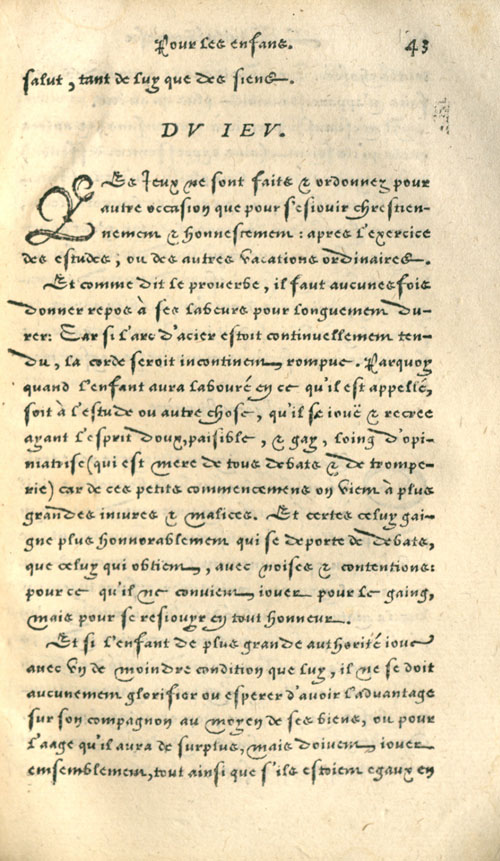 Pour les enfans. 43
salut, tant de luy que des siens.
DV IEV.
LEs Jeux ne sont faits & ordonnez pour
autre occasion que pour s'esiouir chrestien-
nement & honnestement : apres l'exercice
des estudes, ou des autres vacations ordinaires.
Et comme dit le proverbe, il faut aucunesfois
donner repos à ses labeurs pour longuement du-
rer: Car si l'arc d'acier estoit continuellement ten-
du, la corde seroit incontinent rompue. Parquoy
quand l'enfant aura labouré en ce qu'il est appellé,
soit à l'estude ou autre chose, qu'il se iouë & recree
ayant l'esprit doux, paisible, & gay, loing d'opi-
niatrise (qui est mere de tous debats & de trompe-
rie) car de ces petits commencemens on vient à plus
grandes iniures & malices. Et certes celuy gai-
gne plus honnorablement qui se deporte de debats,
que celuy qui obtient, avec noises & contentions:
pour ce qu'il ne convient iouer pour le gaing,
mais pour se resiouyr en tout honneur.
Et si l'enfant de plus grande authorité ioue
avec vn de moindre condition que luy, il ne se doit
aucunement glorifior ou esperer d'avoir l'advantage
sur son compagnon au moyen de ses biens, ou pour
l'aage qu'il aura de surplus, mais doivent iouer
emsemblement, tout ainsi que s'ils estoient egaux en